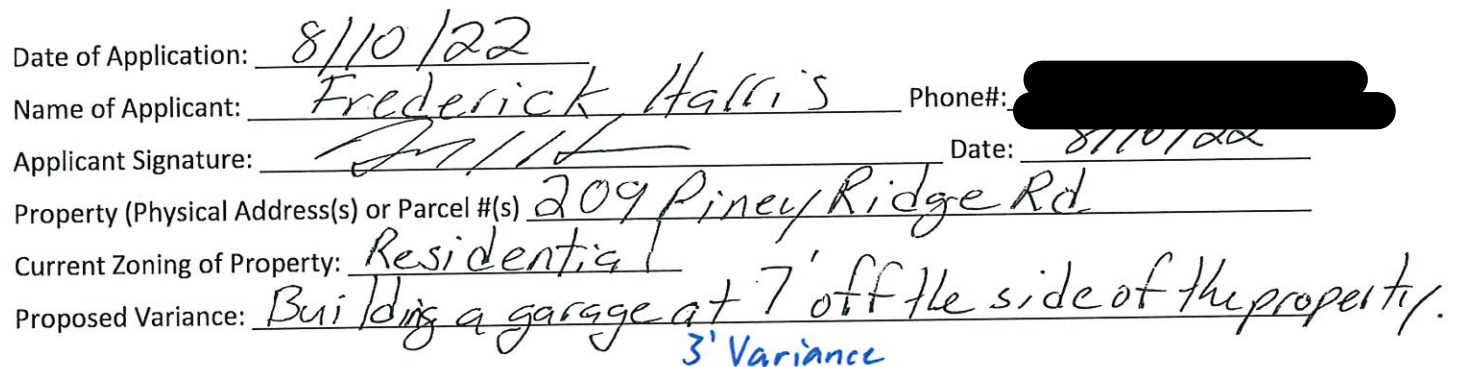 Date of Application: 8/10/22
Name of Applicant: Frederick Harris Phone#:
Applicant Signature: Date: 8/10/22
Property (Physical Address(s) or Parcel #(s) 209 Piney Ridge Rd
Current Zoning of Property: Residential
Proposed Variance: Building a garage at 7' off the side of the property.
3' Variance